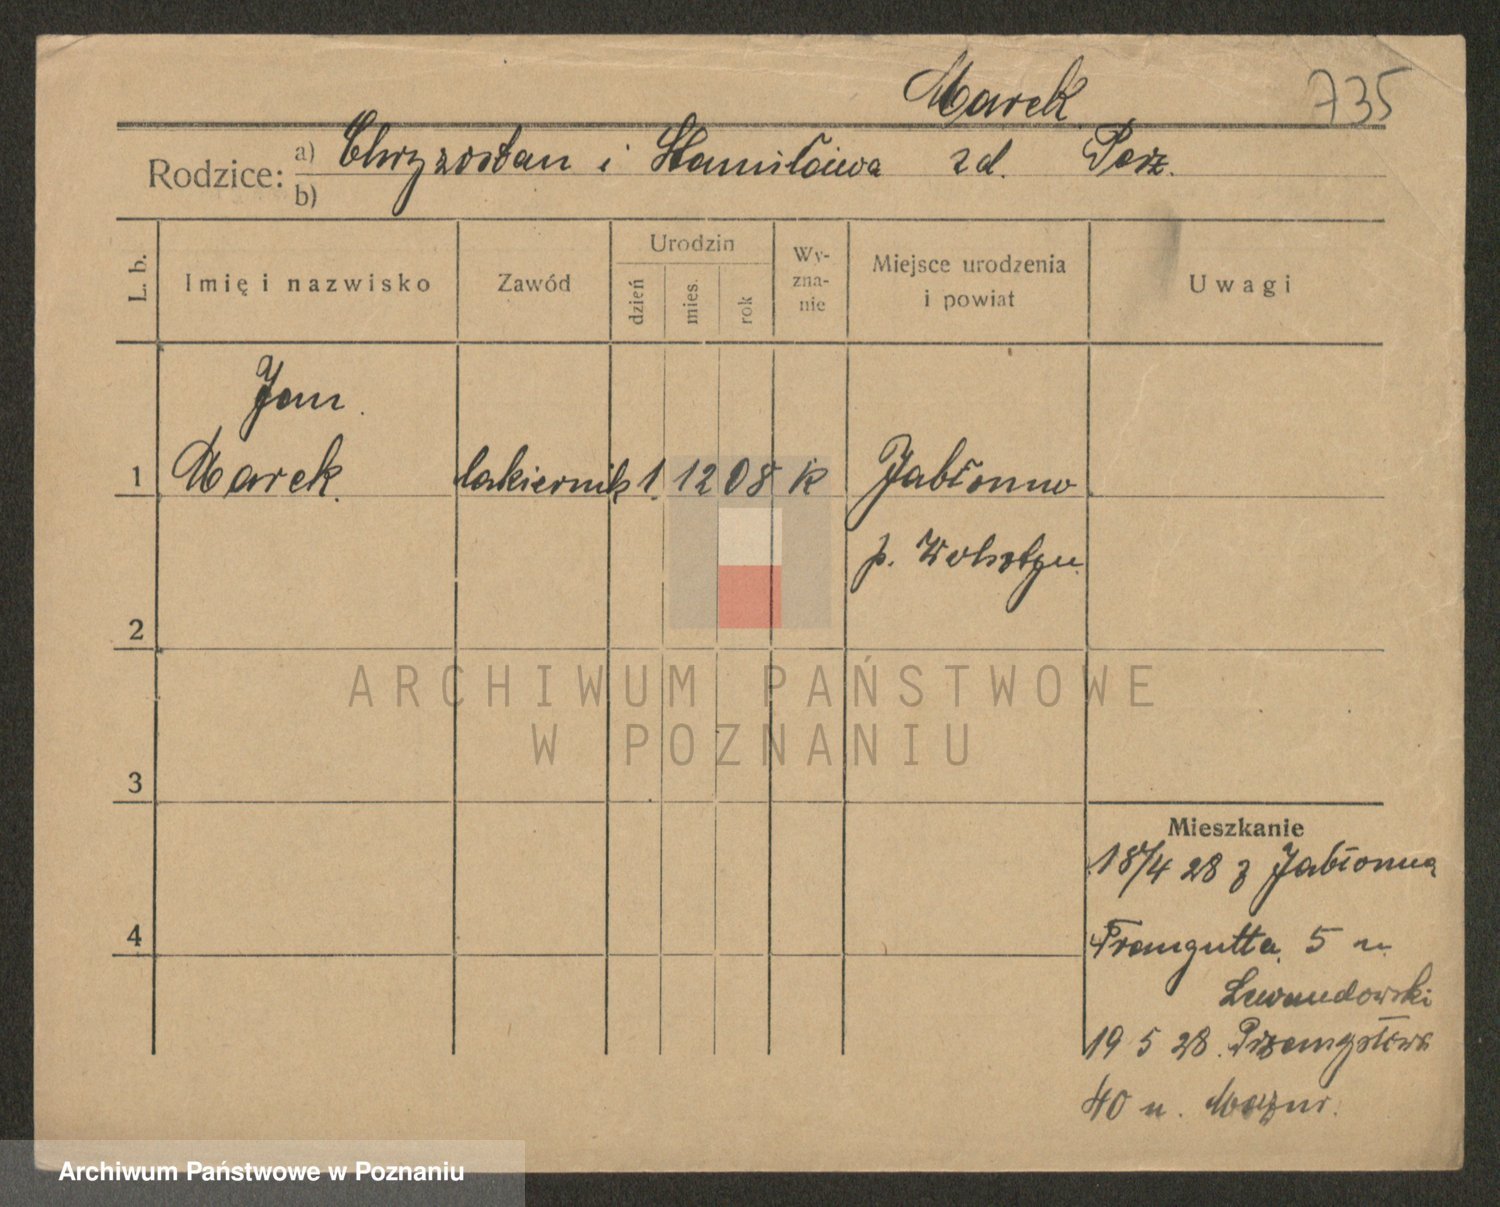 Marek
735
Rodzice: a) Chryzostan i Stanisława zd.
b)
L. b.
Imię i nazwisko
Zawód
Urodzin
dzień
mies.
rok
Wy-
zna-
nie
Miejsce urodzenia
i powiat
Uwagi
Jan
1 Marek lakiernik 1. 12 08 k Jabłonno
p. Wolsztyn
2
ARCHIWUM PAŃSTWOWE
W POZNANIU
3
Mieszkanie
18/4 28 z Jabłonna
4
Traugutta 5 u
Lewandowski
19 5 28. Przemysłowa
40 u. Mazur.
Archiwum Państwowe w Poznaniu